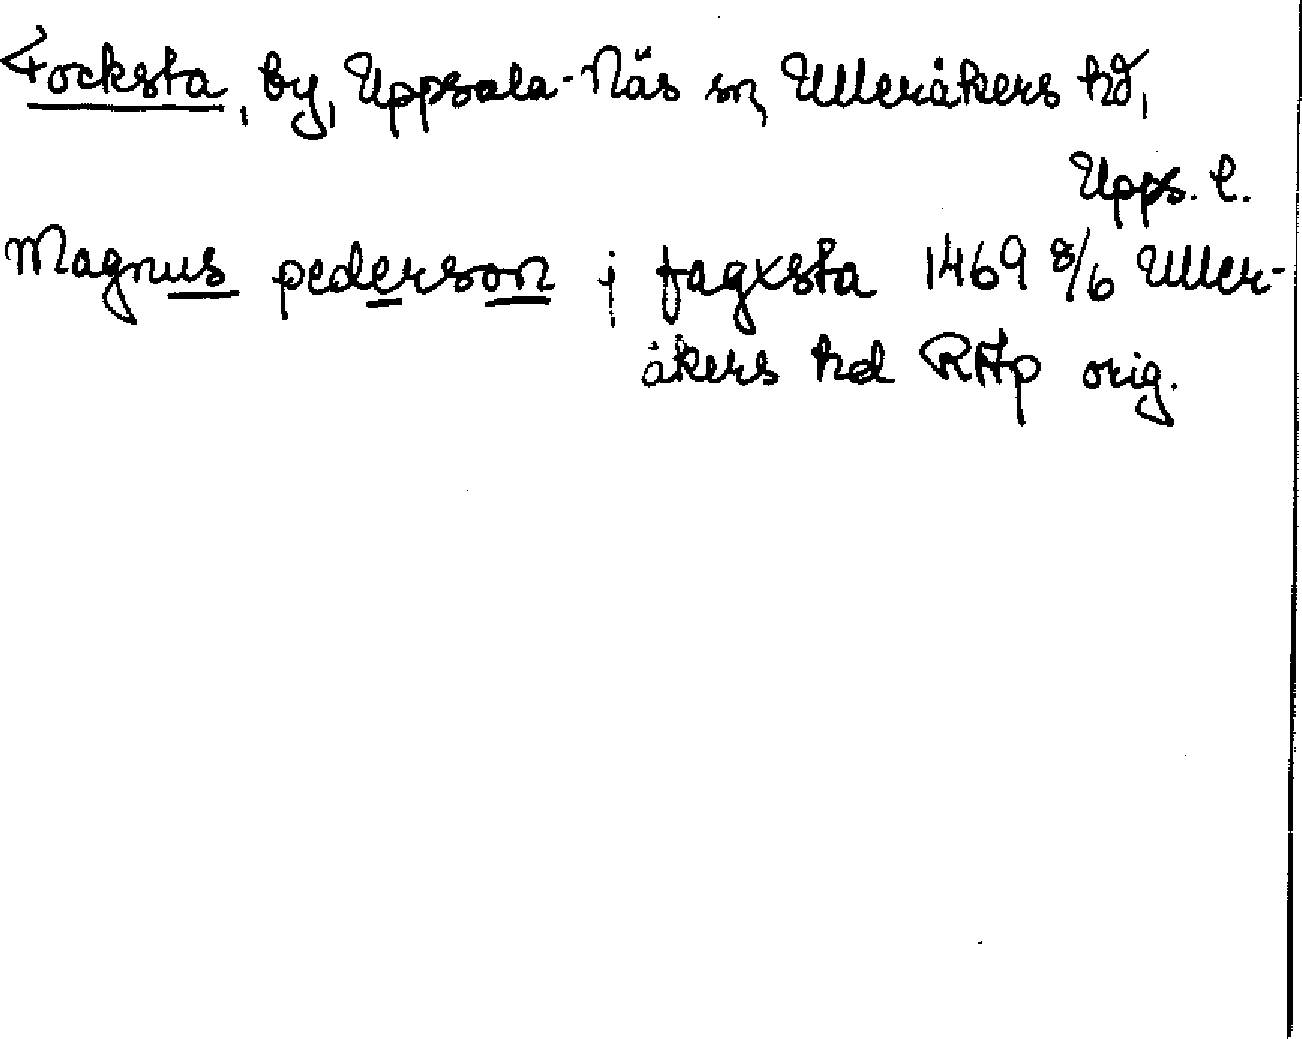 Focksta, by, Uppsala-Näs sn, Ulleråkers hd,
Upps. l.
Magnus pederson i fagxsta 1469 8/6 Uller-
åkers hd RAp orig.